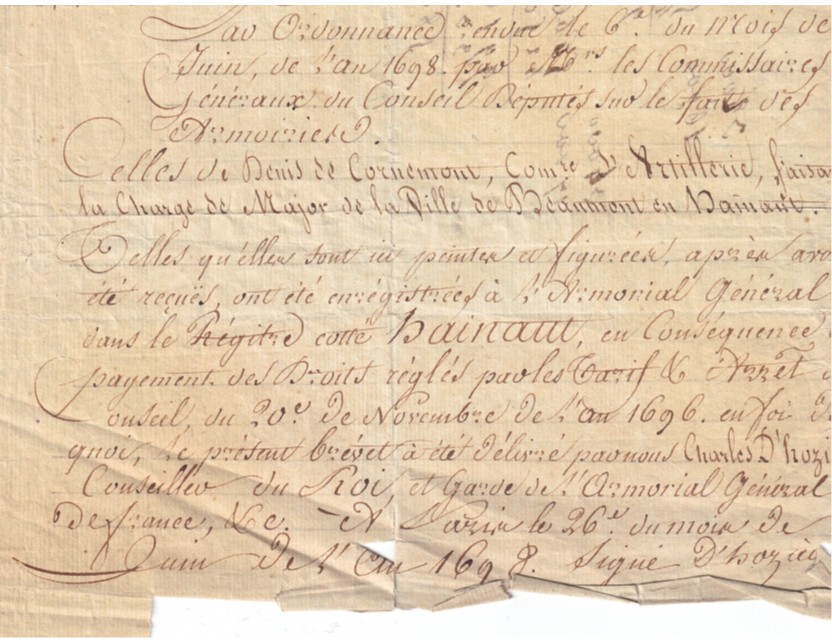 Par Ordonnance rendue le 6.e du Mois de
Juin, de l'an 1698. par M.rs les Commissaires
Généraux du Conseil Députés sur le fait des
Armoiries.
Celles de Denis de Cornemont, Com.re d'Artillerie, faisa
la Charge de Major de la Ville de Beaumont en Hainaut.
Telles qu'elles sont ici peintes et figurées, après avo
été reçuës, ont été enrégistrées à l'Armorial Général
dans le Régitre cotté Hainaut, en Conséquence
payement des Droits réglés par les Tarif & Arrêt
Conseil, du 20.e de Novembre de l'an 1696. en foi d
quoi, le présent brévet à été délivré par nous Charles D'hozi
Conseiller du Roi, et Garde de l'Armorial Général
de france, &c. A Paris le 26.e du mois de
Juin de l'An 1698. Signé D'hozier